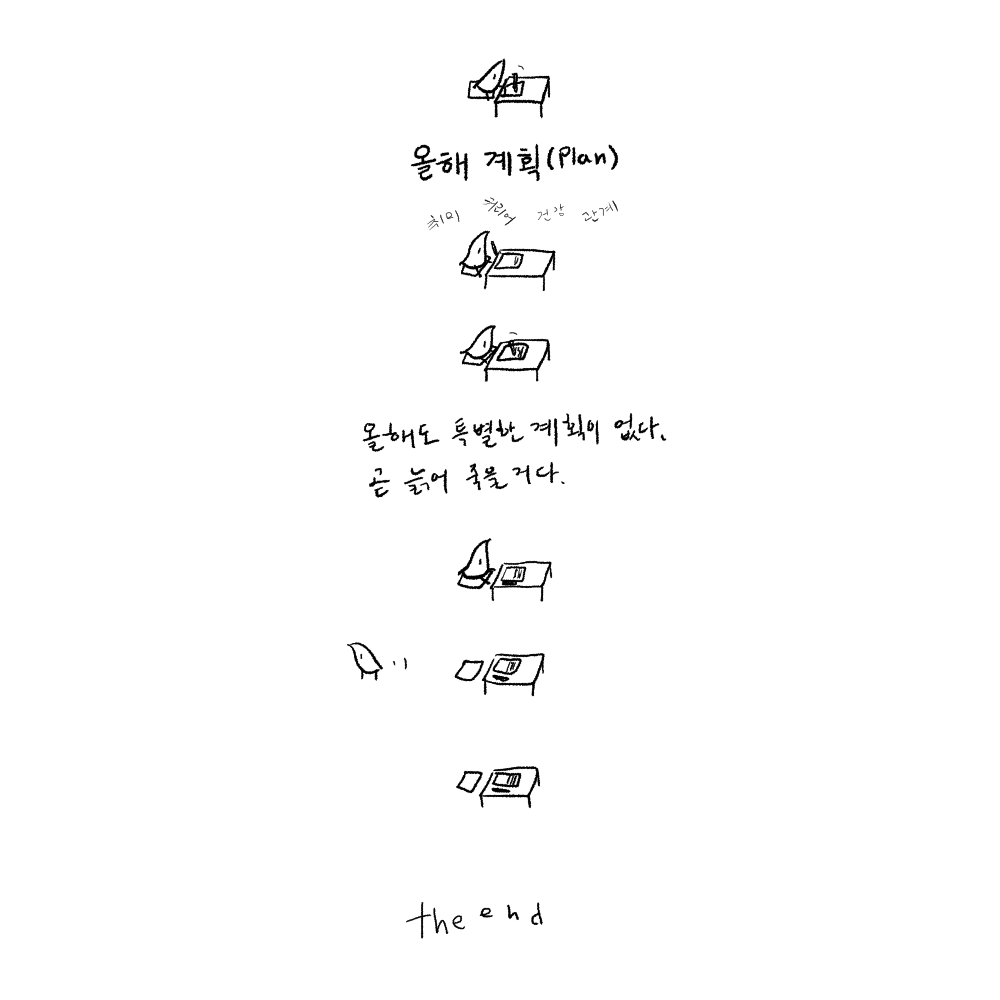 올해 계획(Plan)
취미 커리어 건강 관계
올해도 특별한 계획이 없다.
곧 늙어 죽을 거다.
the end